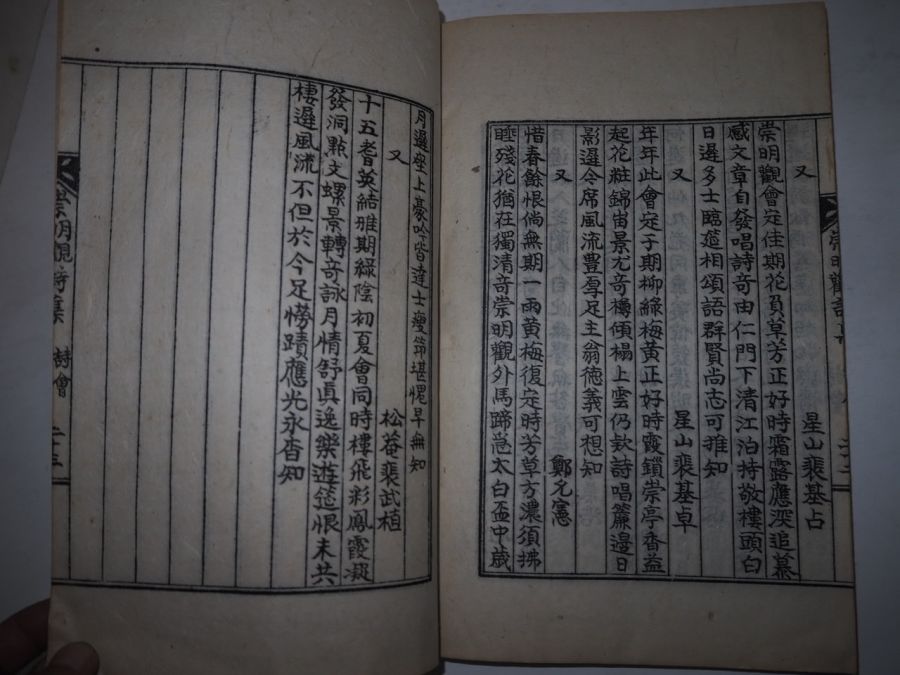 又 星山裵基占
崇明觀會定佳期花負草芳正好時霜露應深追慕
感文章自發唱詩奇由仁門下清江泊持敬樓頭白
日遲多士臨筵相頌語群賢尚志可推知
又 星山裵基卓
年年此會定于期柳綠梅黃正好時霞鎖崇亭香益
起花粧錦宙景尤奇樽傾榻上雲仍欵詩唱簾邊日
影遲今席風流豊厚足主翁德義可想知
又 鄭允憲
惜春餘恨倘無期一雨黃梅復定時芳草方濃須拂
睦殘花猶在獨清奇崇明觀外馬蹄急太白盃中歲
月遲座上豪吟皆達士瘦笻堪愧早無知
又 松菴裵武植
十五耆英結雅期綠陰初夏會同時樓飛彩鳳霞凝
發洞點文螺景轉奇詠月情舒眞逸樂遊筵恨未共
棲遲風流不但於今足蹟應光永杳知
崇明觀詩集 詩會 二十三